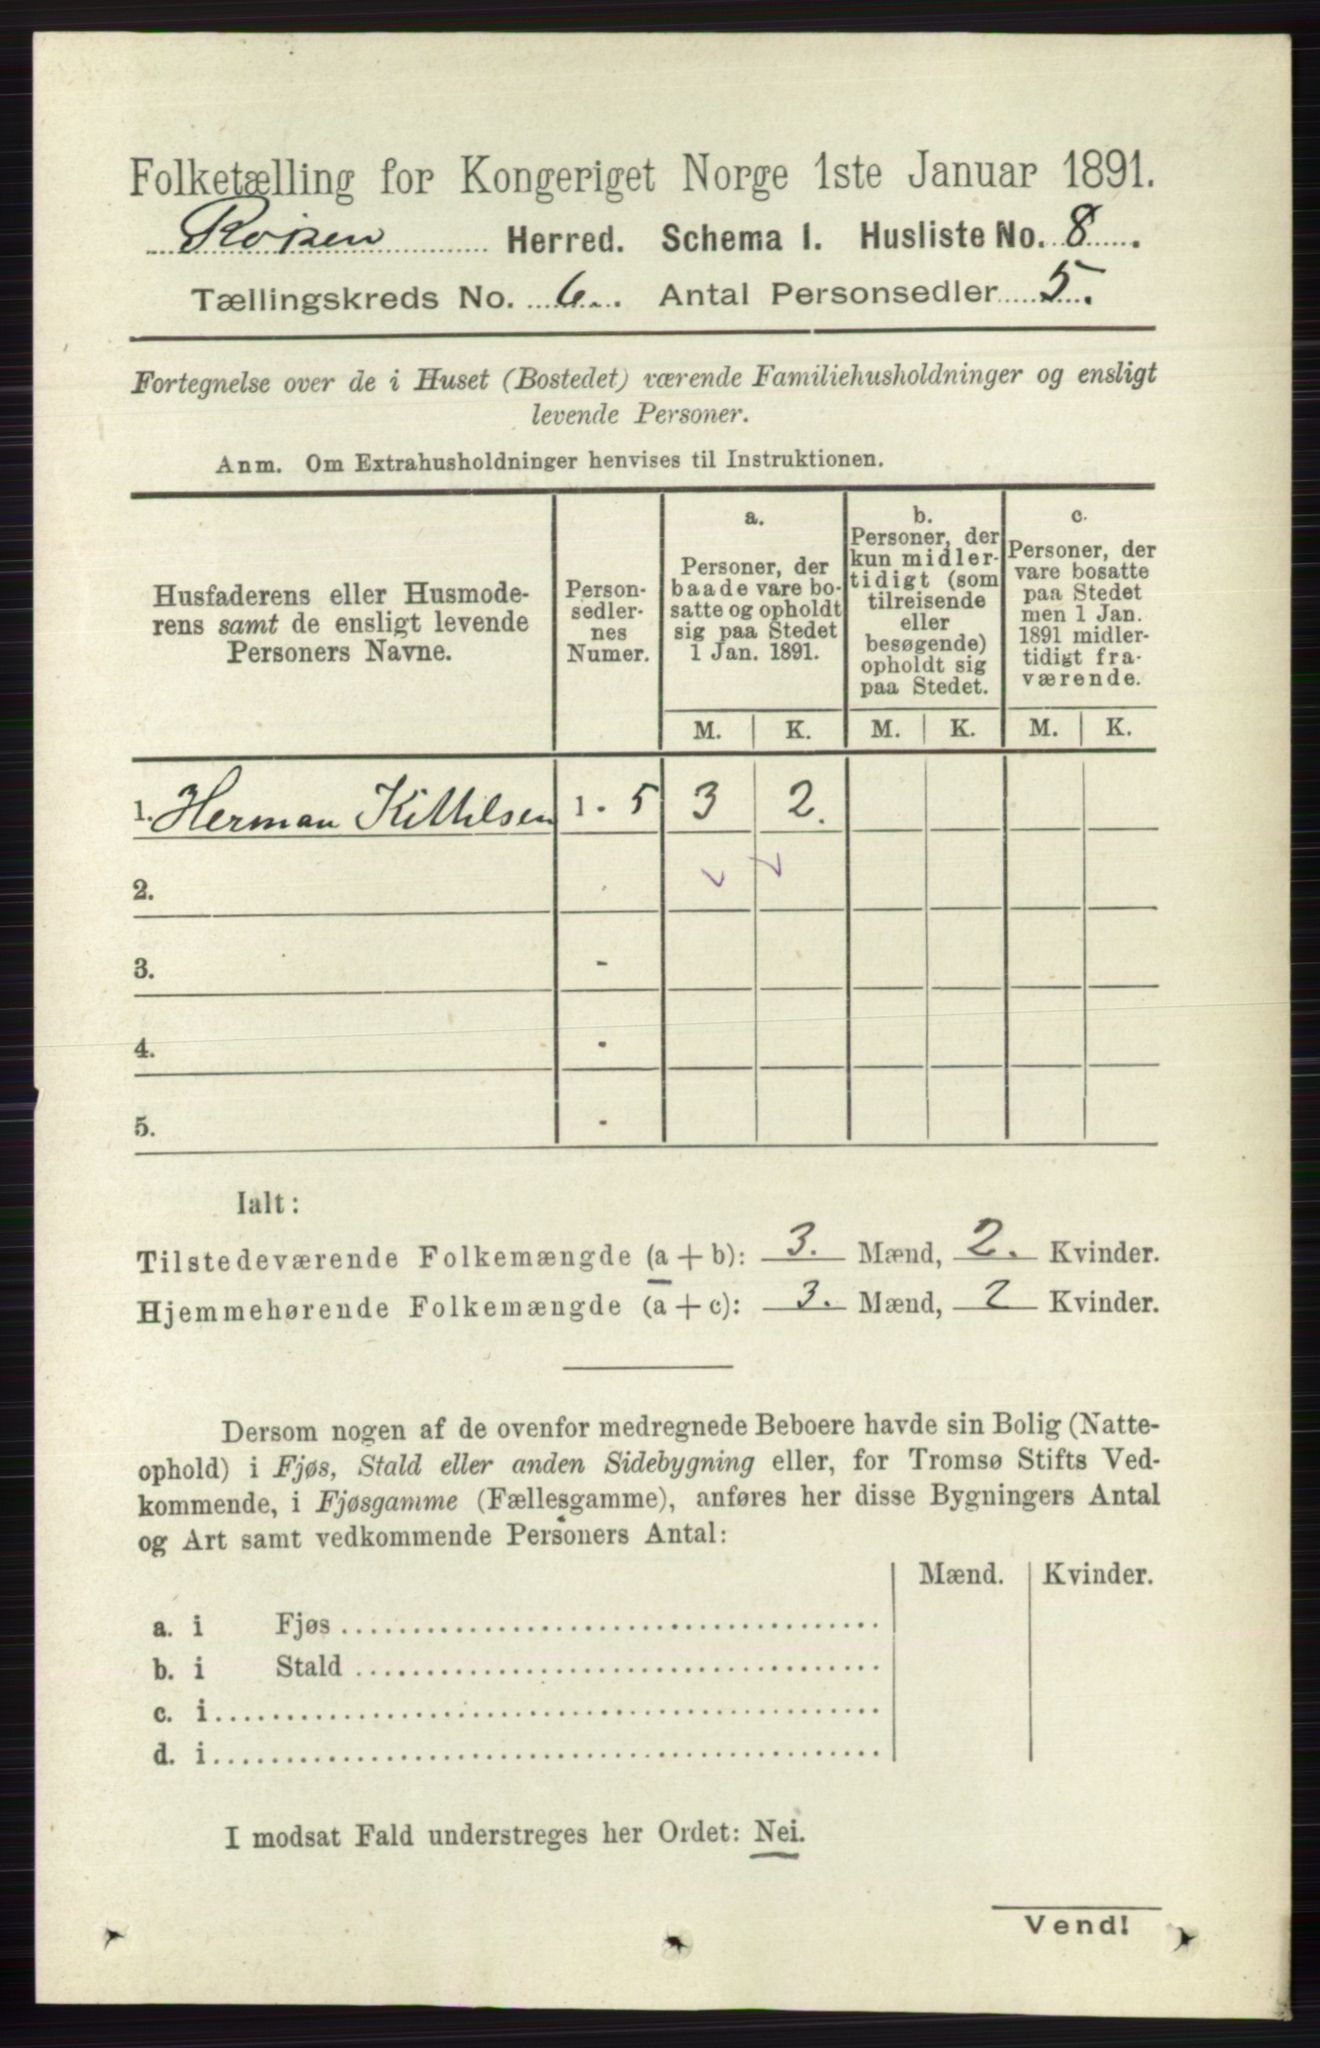 Folketælling for Kongeriget Norge 1ste Januar 1891.
Røken Herred. Schema 1. Husliste No. 8.
Tællingskreds No. 6. Antal Personsedler 5.
Fortegnelse over de i Huset (Bostedet) værende Familiehusholdninger og ensligt
levende Personer.
Anm. Om Extrahusholdninger henvises til Instruktionen.
Husfaderens eller Husmode-
rens samt de ensligt levende
Personers Navne.
Person-
sedler-
nes
Numer.
a.
Personer, der
baade vare bo-
satte og opholdt
sig paa Stedet
1 Jan. 1891.
b.
Personer, der
kun midler-
tidigt (som
tilreisende
eller
besøgende)
opholdt sig
paa Stedet.
c.
Personer, der
vare bosatte
paa Stedet
men 1 Jan.
1891 midler-
tidigt fra-
værende.
M. K. M. K. M. K.
1. Herman Kittilsen 1 - 5 3 2.
2.
3. -
4. -
5. -
Ialt:
Tilstedeværende Folkemængde (a + b): 3. Mænd, 2. Kvinder.
Hjemmehørende Folkemængde (a + c): 3. Mænd, 2 Kvinder.
Dersom nogen af de ovenfor medregnede Beboere havde sin Bolig (Natte-
ophold) i Fjøs, Stald eller anden Sidebygning eller, for Tromsø Stifts Ved-
kommende, i Fjøsgamme (Fællesgamme), anføres her disse Bygningers Antal
og Art samt vedkommende Personers Antal:
Mænd. Kvinder.
a. i Fjøs
b. i Stald
c. i
d. i
I modsat Fald understreges her Ordet: Nei.
Vend!